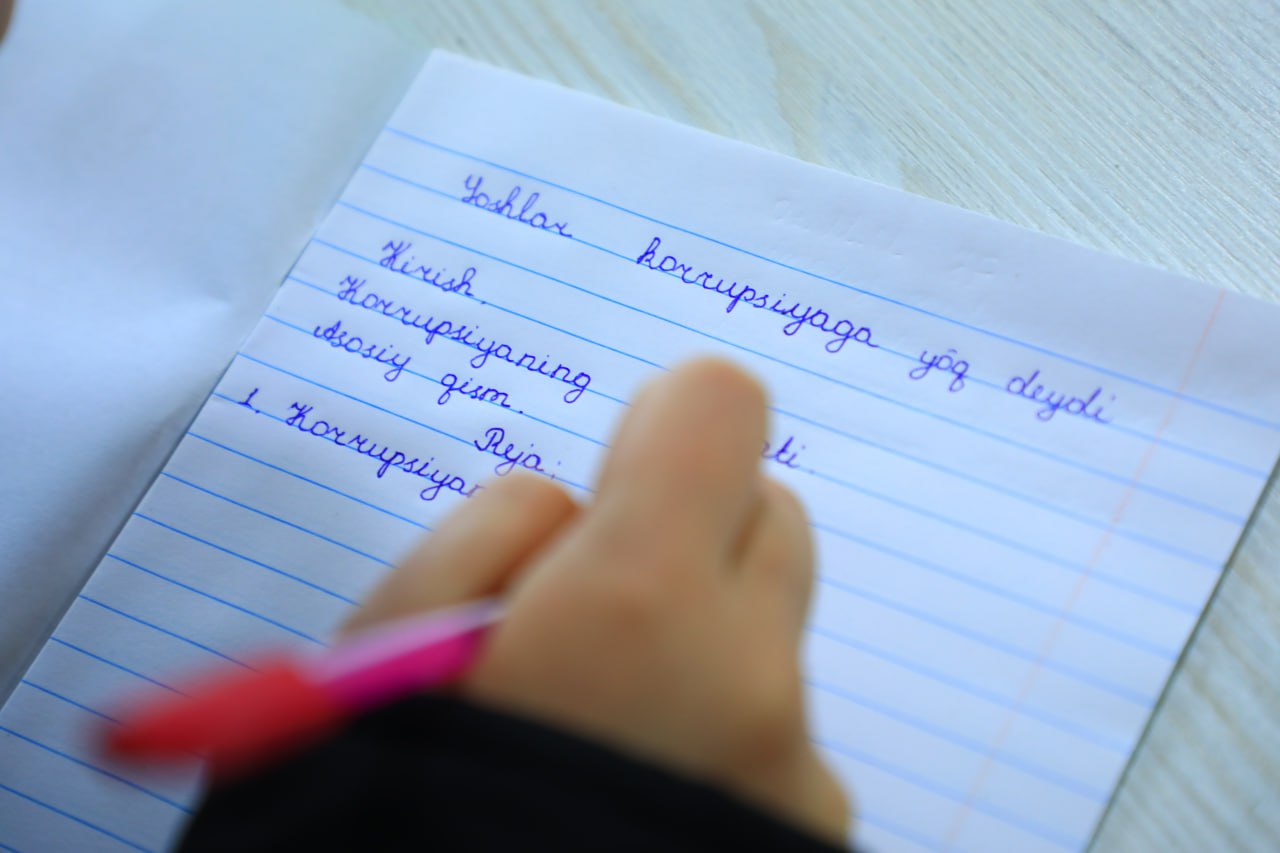 Yoshlar korrupsiyaga yōq deydi
Kirish.
Korrupsiyaning
Asosiy qism.
Reja:
1. Korrupsiya